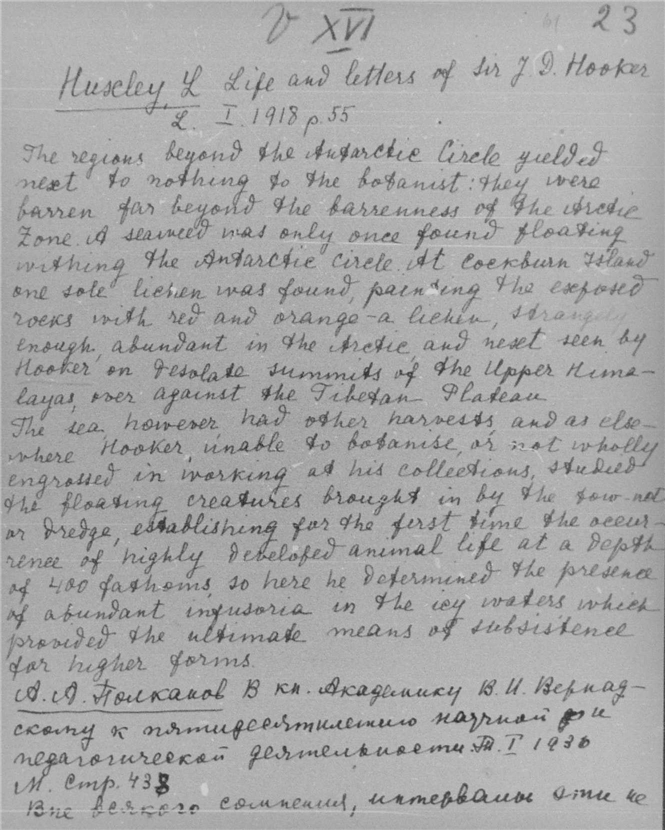 V XVI 23
Huxley, L Life and letters of Sir J. D. Hooker
L. I. 1918 p. 55
The regions beyond the Antarctic Circle yielded
next to nothing to the botanist: they were
barren far beyond the barrenness of the Arctic
Zone. A seaweed was only once found floating
withing the Antarctic Circle. At Cockburn Island
one sole lichen was found, painting the exposed
rocks with red and orange – a lichen, strangely
enough, abundant in the Arctic, and next seen by
Hooker on desolate summits of the Upper Hima-
layas, over against the Tibetan Plateau
The sea however had other harvests, and as else-
where Hooker, unable to botanise, or not wholly
engrossed in working at his collections, studied
the floating creatures brought in by the tow-net
or dredge, establishing for the first time the occur-
rence of highly developed animal life at a depth
of 400 fathoms, so here he determined the presence
of abundant infusoria in the icy waters which
provided the ultimate means of subsistence
for higher forms.
А. А. Полканов В кн. Академику В. И. Вернад-
скому к пятидесятилетию научной и
педагогической деятельности. Т. I 1936
М. стр. 43
Вне всякого сомнения, интервалы эти не